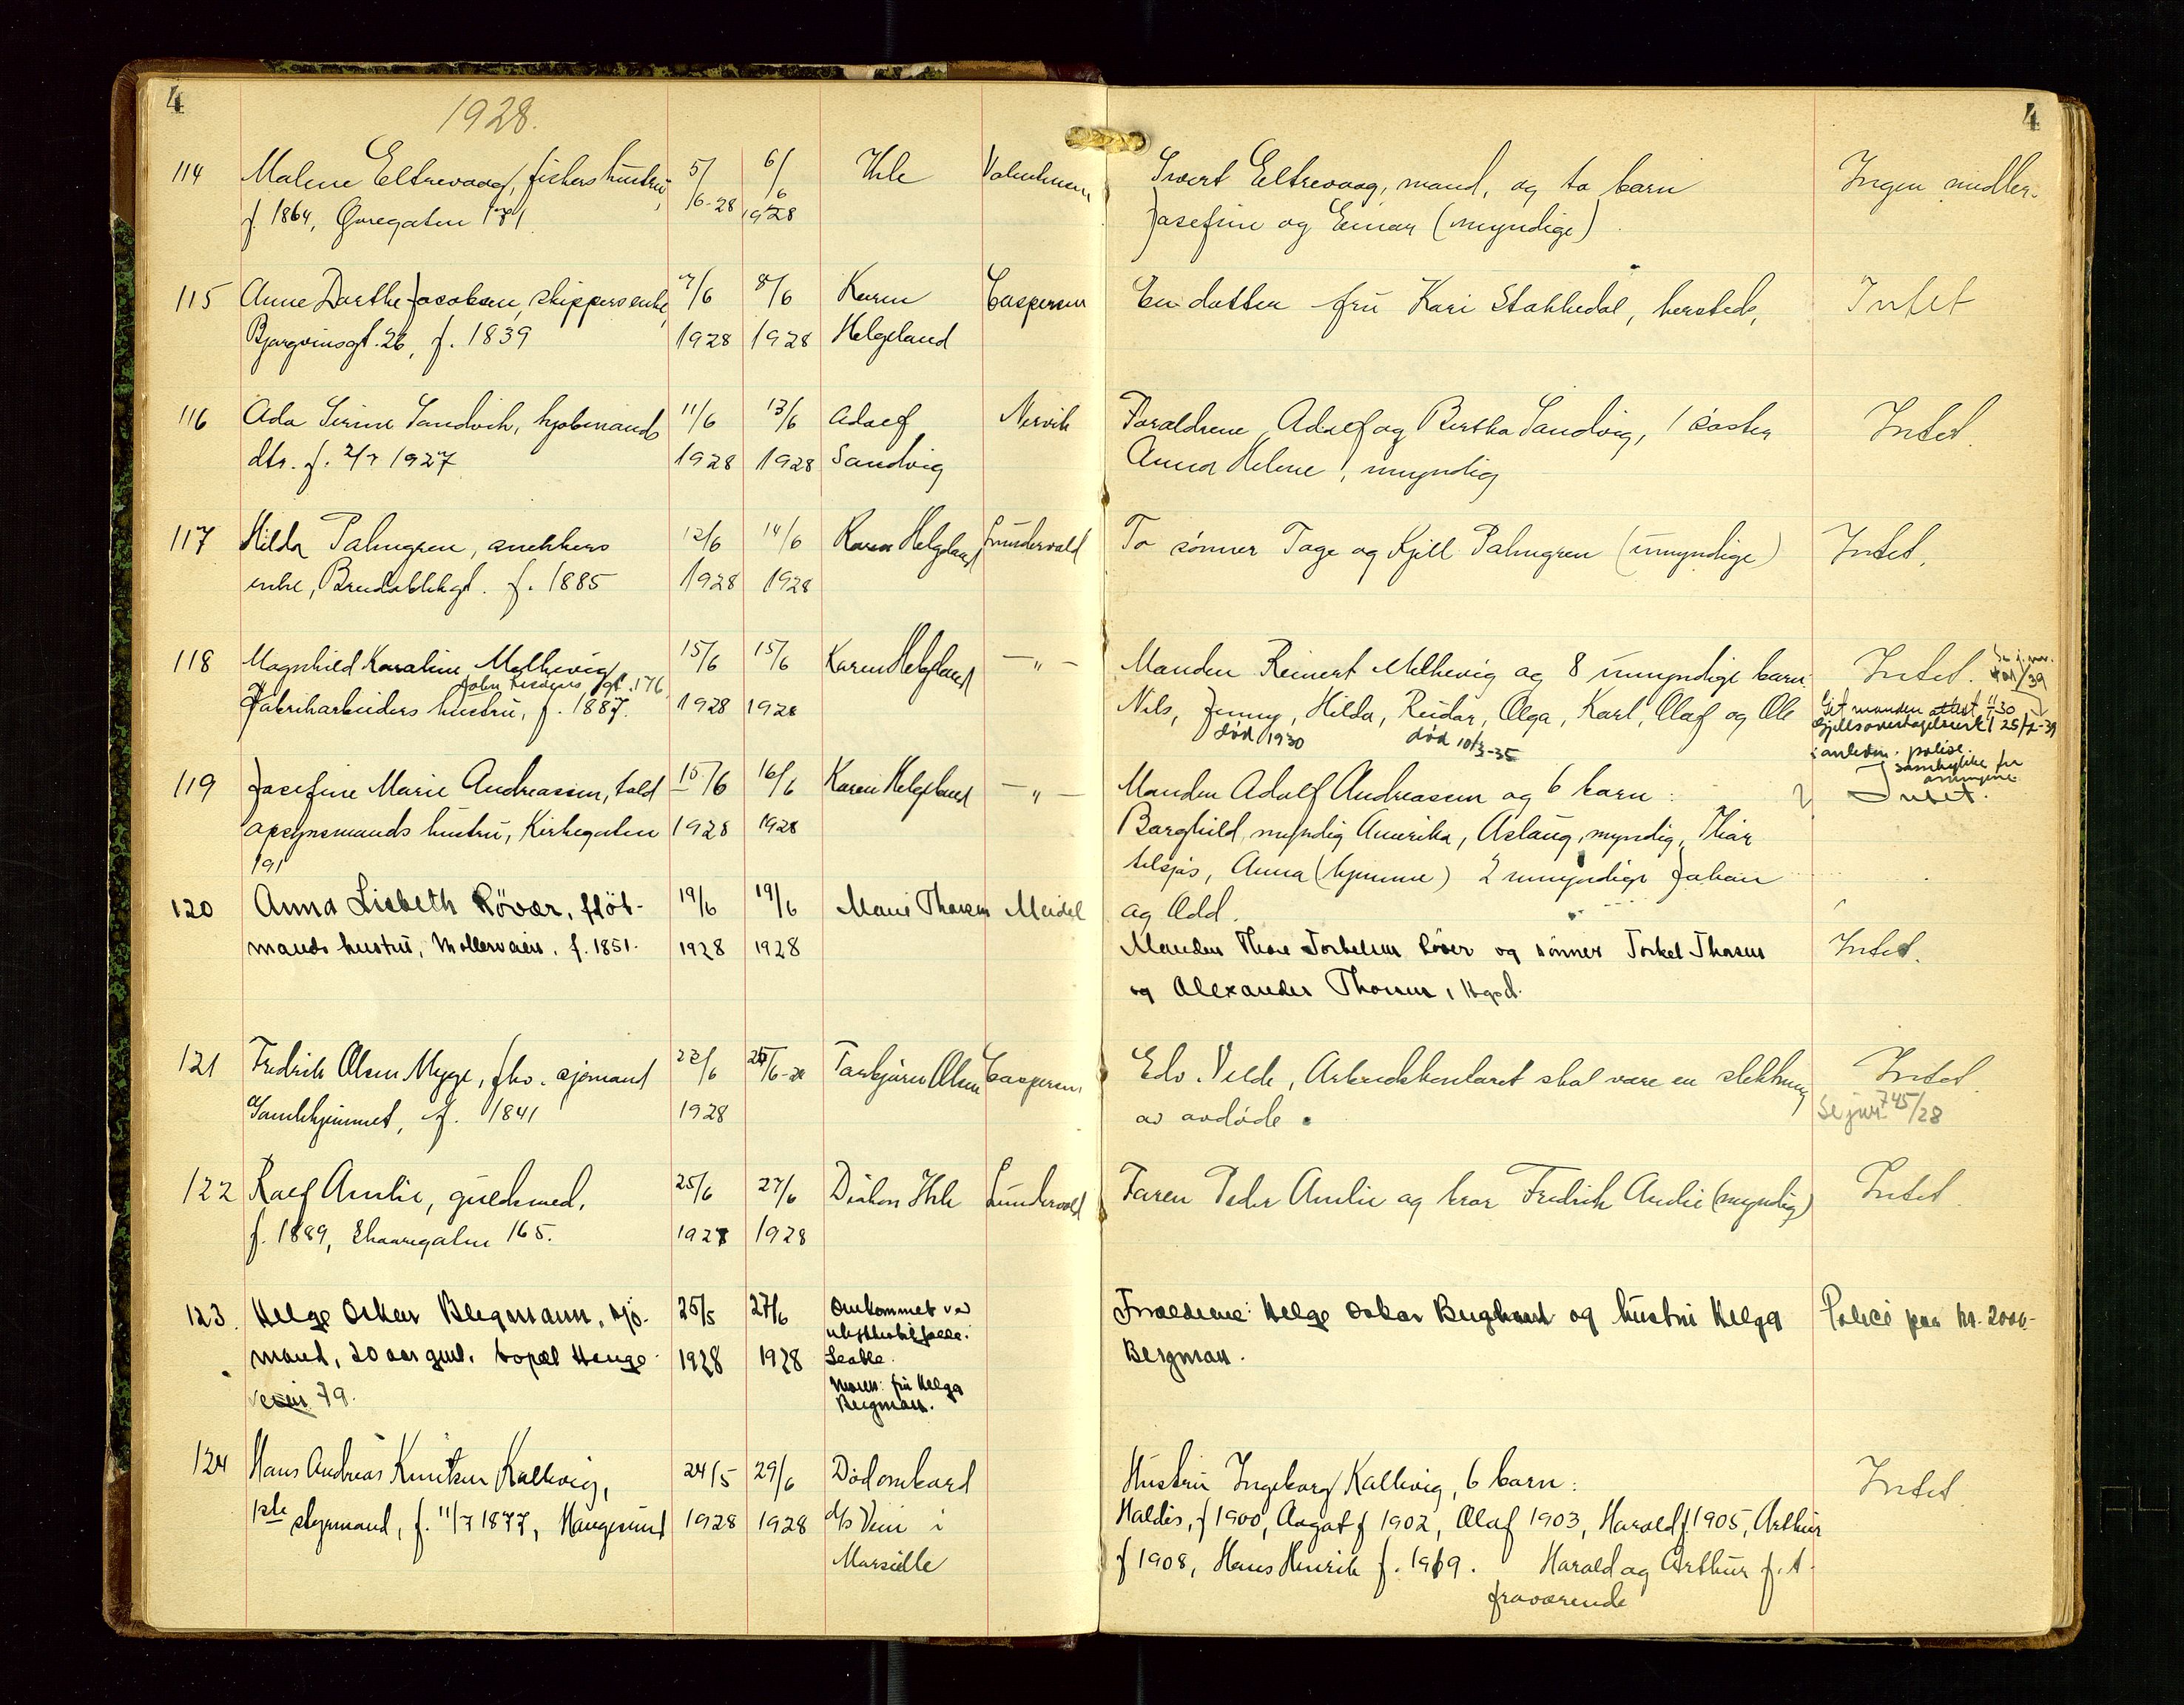 4
4
1928.
114 Malene Eltrevaag, fiskers hustru, 5/6-28 6/6 1928 Ihle Sivert Eltrevaag, mand, og to barn Ingen midler.
f. 1864, Øvregaten 171 Josefine og Einar (myndige)
115 Anne Dorthe Jacobsen, skippers enke, 7/6 8/6 Karen Caspersen En datter fru Kari Stakkedal, hersteds, Intet
Bjørgvinsgt. 26, f. 1839 1928 1928 Helgeland
116 Ada Serine Sandvik, kjøbmands 11/6 13/6 Adolf Nervik Forældrene Adolf og Bertha Sandvig, 1 søster Intet.
dtr. f. 2/7 1927 1928 1928 Sandvig Anna Helene, umyndig
117 Hilda Palmgren, snekkers 12/6 14/6 Karen Helgeland Lundervold To sønner Tage og Kjell Palmgren (umyndige) Intet.
enke, Breidablikgt. f. 1885 1928 1928
118 Magnhild Karoline Melhevig 15/6 15/6 Karen Helgeland — " — Manden Reinert Melhevig og 8 umyndige barn: Intet.
gt. 176
Fabrikarbeiders hustru, f. 1887. 1928 1928 Nils, Jenny, Hilda, Reidar, Olga, Karl, Olaf og Ole
død 1930 død 10/3-35
Git manden attest
gjeldsovertagelse
anledn. polise.
samtykke
119 Josefine Marie Andreassen, told 15/6 16/6 Karen Helgeland — " — Manden Adolf Andreassen og 6 barn: Intet.
opsynsmands hustru, Kirkegaten 1928 1928 Borghild, myndig Amerika, Aslaug, myndig, Thor
191 tilsjøs, Anna (hjemme) 2 umyndige Johan
og Odd.
120 Anna Lisbeth Røvær, fløt- 19/6 19/6 Marie Thorsen Meidel Manden Thore Torkelsen Røvær og sønner Torkel Thorsen Intet.
mands hustru, Møllerveien, f. 1851. 1928 1928 og Alexander Thorsen, Hgsd.
121 Fredrik Olsen Mygge, fhv. sjømand 22/6 Torbjørn Olsen Caspersen Edv. Velde, Arbeidskontoret skal være en slektning Intet.
Gamlehjemmet, f. 1841 1928 av avdøde. Se jur. 745/28
122 Rolf Amlie, guldsmed, 25/6 27/6 Diakon Ihle Lundervold Faren Peder Amlie og bror Fredrik Amlie (myndig) Intet.
f. 1889, Skaaregaten 165. 1928 1928
123. Helge Oskar Bergmann, sjø- 25/5 27/6 Omkommet ved Forældrene: Helge Oskar Bergmann og hustru Helga Police paa kr. 2000-
mand, 20 aar gml. bopæl Hauge- 1928 1928 ulykkestilfælle. Bergman.
veien 79. Seattle.
Moren: fru Helga
Bergman.
124 Hans Andreas Knutsen Kallevig, 24/5 29/6 Død ombord Hustru Ingeborg Kallevig, 6 barn: Intet.
1ste styrmand, f. 11/7 1877, Haugesund 1928 1928 d/s Vein i Haldis, f 1900, Aagot f 1902, Olaf 1903, Harald f. 1905, Arthur
Marseille f 1908, Hans Henrik f. 1919. Harald og Arthur f. t.
fraværende